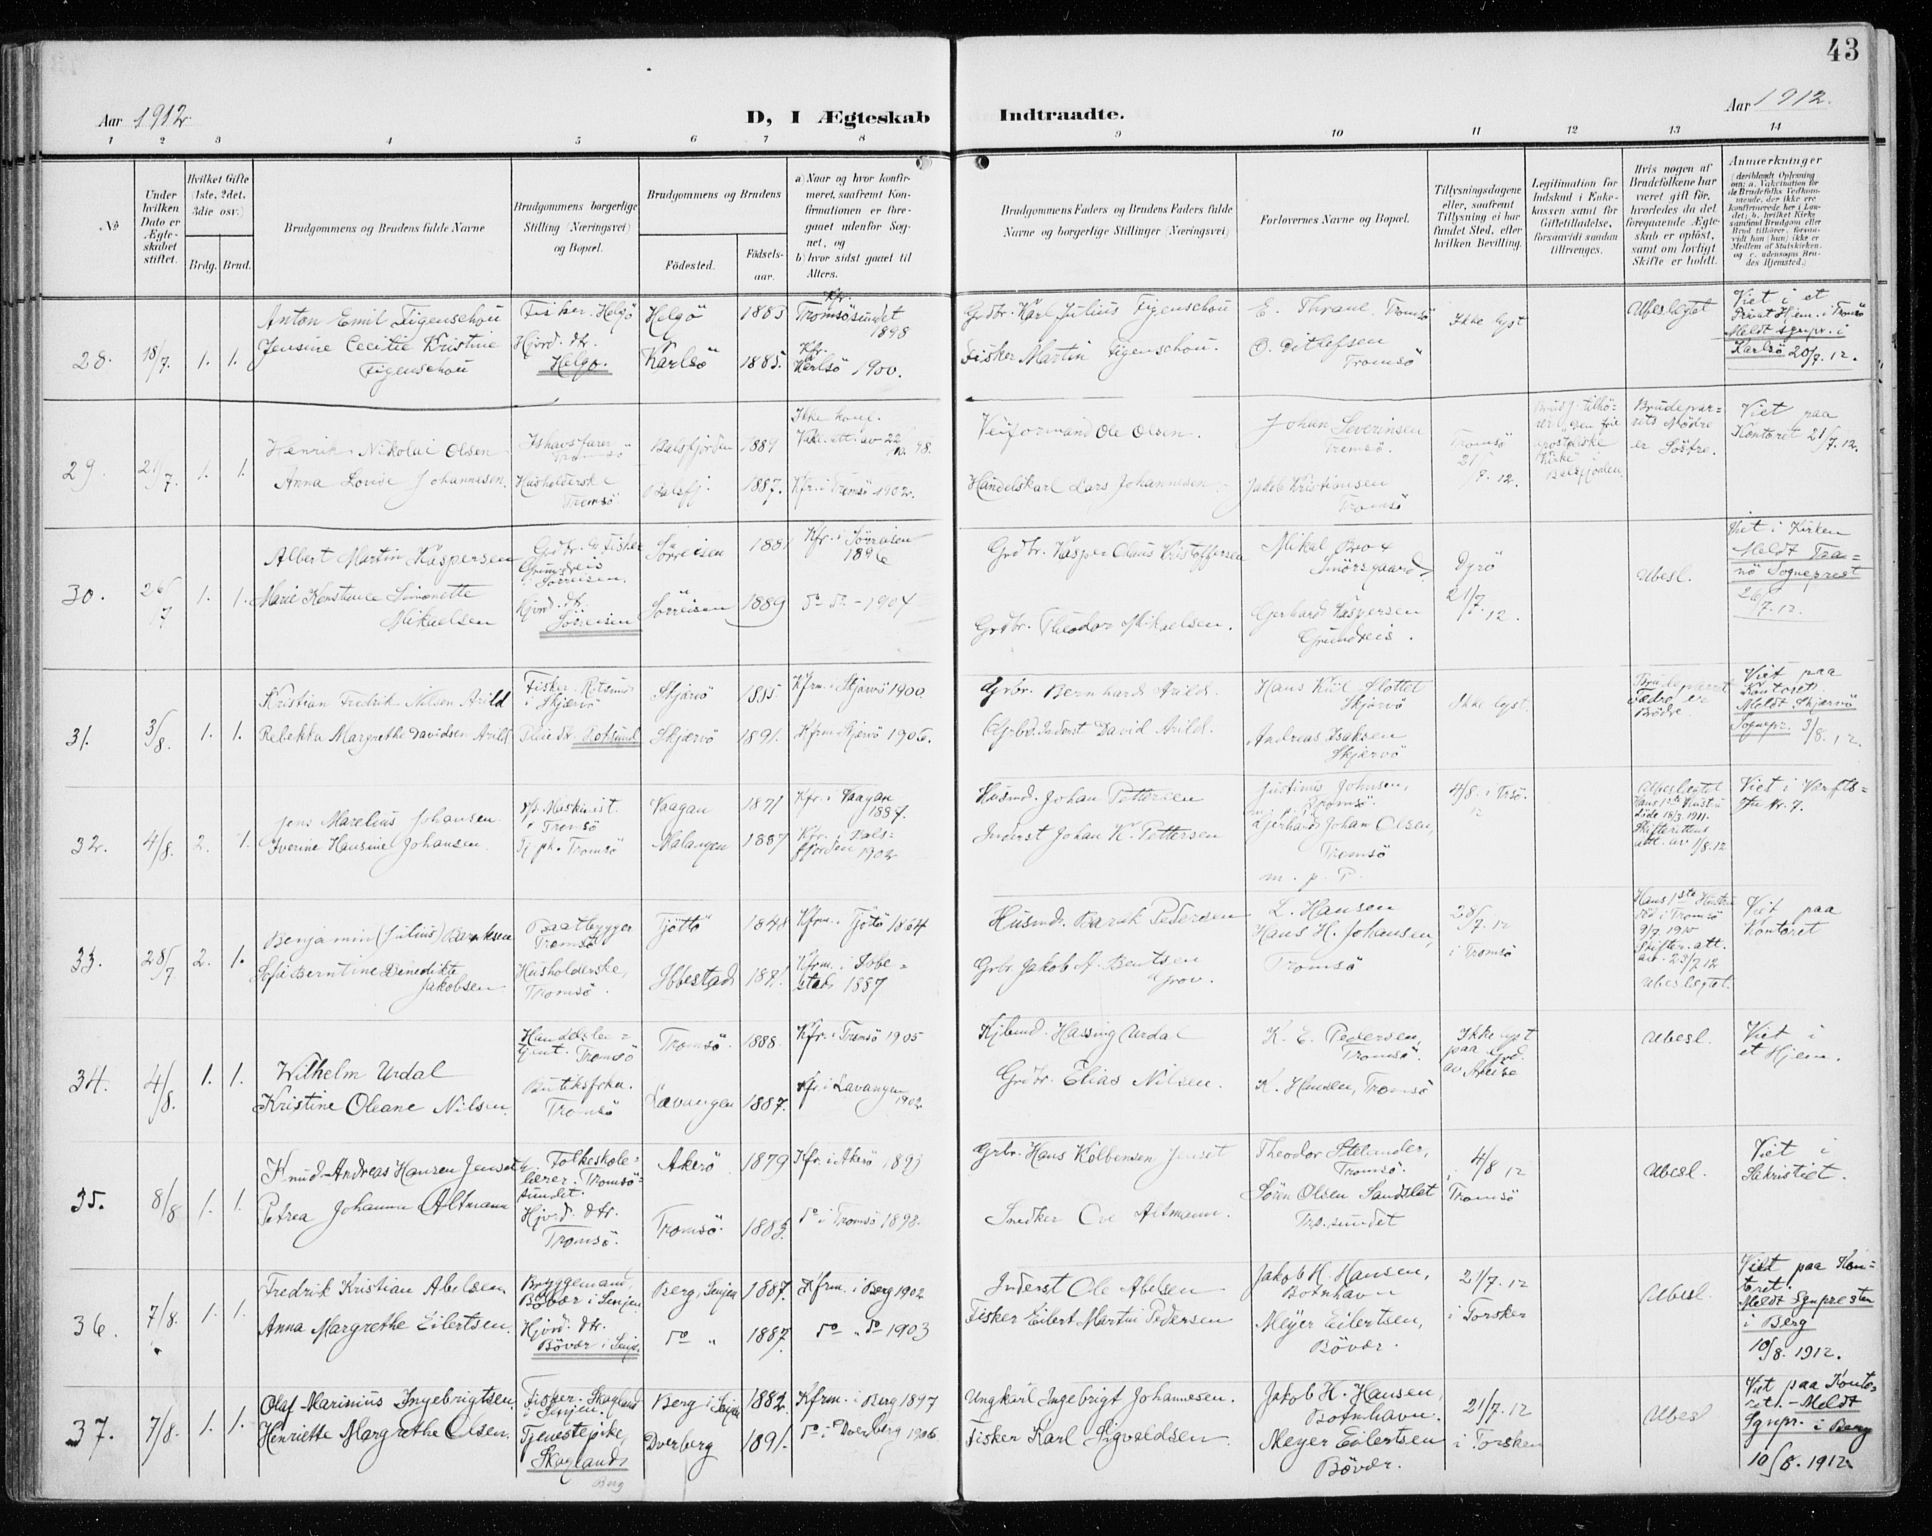 43
Aar 1912.
D, I Ægteskab
Indtraadte.
Aar 1912.
1 2 3 4 5 6 7 8 9 10 11 12 13 14
No
Under hvilken Dato er Ægteskabet stiftet.
Hvilket Gifte (1ste, 2det, 3die osv.)
Brdg. Brud.
Brudgommens og Brudens fulde Navne
Brudgommens borgerlige Stilling (Næringsvei) og Bopæl.
Brudgommens og Brudens
Fødested.
Fødselsaar.
a) Naar og hvor konfirmeret, saafremt Konfirmationen er foregaaet udenfor Sognet, og
b) hvor sidst gaaet til Alters.
Brudgommens Faders og Brudens Faders fulde Navne og borgerlige Stillinger (Næringsvei)
Forlovernes Navne og Bopæl.
Tillysningsdagene eller, saafremt Tillysning ei har fundet Sted, efter hvilken Bevilling.
Legitimation for Indskud i Enkekassen samt for Giftetilladelse, forsaavidt saadan tiltrænges.
Hvis nogen af Brudefolkene har været gift før, hvorledes da det foregaaende Ægteskab er opløst, samt om lovligt Skifte er holdt.
Anmærkninger
28. 18/7 1. 1.
Anton Emil Figenschou
Fisker. Helgö
Helgö 1883
Kfr. Tromsösundet 1898
Grdbr. Karl Julius Figenschou
E. Thrane. Tromsö
Ikke lyst
Ubeslegtet
Viet i et Privat Hjem i Tromsö Meldt sgnpr. i Karlsö 20/7.12.
Jensine Cecilie Kristine Figenschou
Hjvrd. dtr. Helgö.
Karlsö 1885.
Kfr. Karlsö 1900.
Fisker Martin Figenschou.
O. Ditlefsen Tromsö
29. 21/7. 1. 1.
Henrik Nikolai Olsen
Ishavsfarer Tromsö
Balsfjorden 1889
Ikke konf.
Veiformand Ole Olsen.
Johan Severinsen Tromsö.
Tromsö 21/7.12.
Brudeparrets Mödre er Söstre.
Viet paa Kontoret 21/7.12.
Anna Lovise Johannesen.
Husholderske Tromsö
Balsfj. 1887.
Kfr. i Tromsö 1902.
Handelskarl Lars Johannesen
Jakob Kristiansen Tromsö
30. 26/7 1. 1.
Albert Martin Kaspersen
Grdbr. & Fisker Grundreis i Sörreisen.
Sörreisen 1881
Kfr. i Sörreisen 1896
Grdbr. Kasper Claus Kristoffersen
Mikal Brox Smörsgaard
Dyrö 21/7.12.
Ubesl.
Viet i Kirken Meldt Tranö Sogneprest 26/7.12.
Marie Konstanse Simonette Mikaelsen
Hjvrd. dtr. Sörreisen
Sörreisen 1889
do do - 1904
Grdbr. Theodor Mikaelsen.
Gerhard Kaspersen Grundreis.
31. 3/8. 1. 1.
Kristian Fredrik Nilsen Arild
Fisker. Rotsund i Skjervö
Skjervö 1885
Kfrm. i Skjervö 1900
Grbr. Bernhard Arild.
Hans Kiil Slottet Skjervö
Ikke lyst.
Brudeparrets Fædre er Brödre.
Viet paa Kontoret. Meldt Skjervö Sognepr. 3/8.12.
Rebekka Margrethe Davidsen Arild
Rotsund
Skjervö 1891.
Kfrm Skjervö 1906.
Inderst David Arild.
Andreas Isaksen Skjervö
32. 4/8. 2. 1.
Jens Marelius Johansen
Maskinist. Tromsö
Vaagan 1871
Kfr. i Vaagan 1887.
Husmd. Johan Pettersen
Justinus Johnsen, Tromsö.
Ubeslegtet Hans 1ste Hustru döde 18/3 1911. Skifterettens att. av 1/8.12
Viet i Værftsgt. Nr. 7.
Iverine Hansine Johansen
Tj.pk. Tromsö
Malangen 1887
Kfr. i Balsfjorden 1902
Inderst Johan K. Pettersen
Gjerhard Johan Olsen, Tromsö
m. p. P.
33. 28/7 2. 1.
Benjamin (Julius) Baraksen
Baatbygger Tromsö
Tjöttö 1848
Kfrm. i Tjöttö 1864
Husmd. Barak Pedersen
L. Hansen
28/7.12 i Tromsö
Hans 1ste Hustru död i Tromsö 9/7.1910 Skifter. att. av 23/7 12 Ubeslegtet.
Viet paa Kontoret
Sofie Berntine Benedikte Jakobsen
Husholderske, Tromsö.
Ibbestad
Kfrm. i Ibbestad 1887
Grbr. Jakob A. Bentsen Grov.
Hans H. Johansen, Tromsö
34. 4/8. 1. 1.
Wilhelm Urdal
Handelsbetjent. Tromsö
Tromsö. 1888.
Kfr. i Tromsö 1905
Kjbmd. Hassing Urdal
K. E. Pedersen, Tromsö.
Ubesl.
Viet i et Hjem.
Kristine Oleane Nilsen.
Butiksfrkn. Tromsö
Lavangen 1887.
Kfr. i Lavangen 1902
Grdbr. Elias Nilsen.
K. Hansen, Tromsö
35. 8/8 1. 1.
Knud Andreas Hansen Jenset
Folkeskolelærer. Tromsösundet.
Akerö 1879
Kfr. i Akerö 1893
Grbr. Hans Kolbensen Jenset
Theodor Stelander, Tromsö.
4/8 12 i Tromsö
Ubesl.
Viet i Sakristiet.
Petrea Johanna Altmann
Hjvrd. dtr. Tromsö.
Tromsö. 1883.
do i Tromsö 1898.
Snedker Ove Altmann.
Sören Olsen Sandslet Tro.sundet
36. 7/8. 1. 1.
Fredrik Kristian Abelsen
Bryggemand, Bövær i Senjen
Berg, Senjen 1887.
Kfrm. i Berg 1902
Inderst Ole Abelsen
Jakob H. Hansen, Botnhavn
21/7.12 i Torsken
Ubesl.
Viet paa Kontoret. Meldt Sgnpresten i Berg 10/8. 1912.
Anna Margrethe Eilertsen.
Hjvrd. dtr. Bövær i Senjen
do " 1887.
do " do 1903
Fisker Eilert Martin Pedersen
Meyer Eilertsen, Bövær.
37. 7/8. 1. 1.
Olaf Marinius Ingebrigtsen.
Fisker. Skagland i Senjen.
Berg i Senjen 1882.
Kfrm. i Berg 1897
Ungkarl Ingebrigt Johannesen.
Jakob H. Hansen, Botnhavn.
21/7.12 i Torsken
Ubesl
Viet paa Kontoret. - Meldt Sgnpr. i Berg 10/8. 1912
Henriette Margrethe Olsen.
Tjenestepike, Skagland
Berg
Dverberg 1891.
do i Dverberg 1906
Fisker Karl Sigvaldsen.
Meyer Eilertsen Bövær.